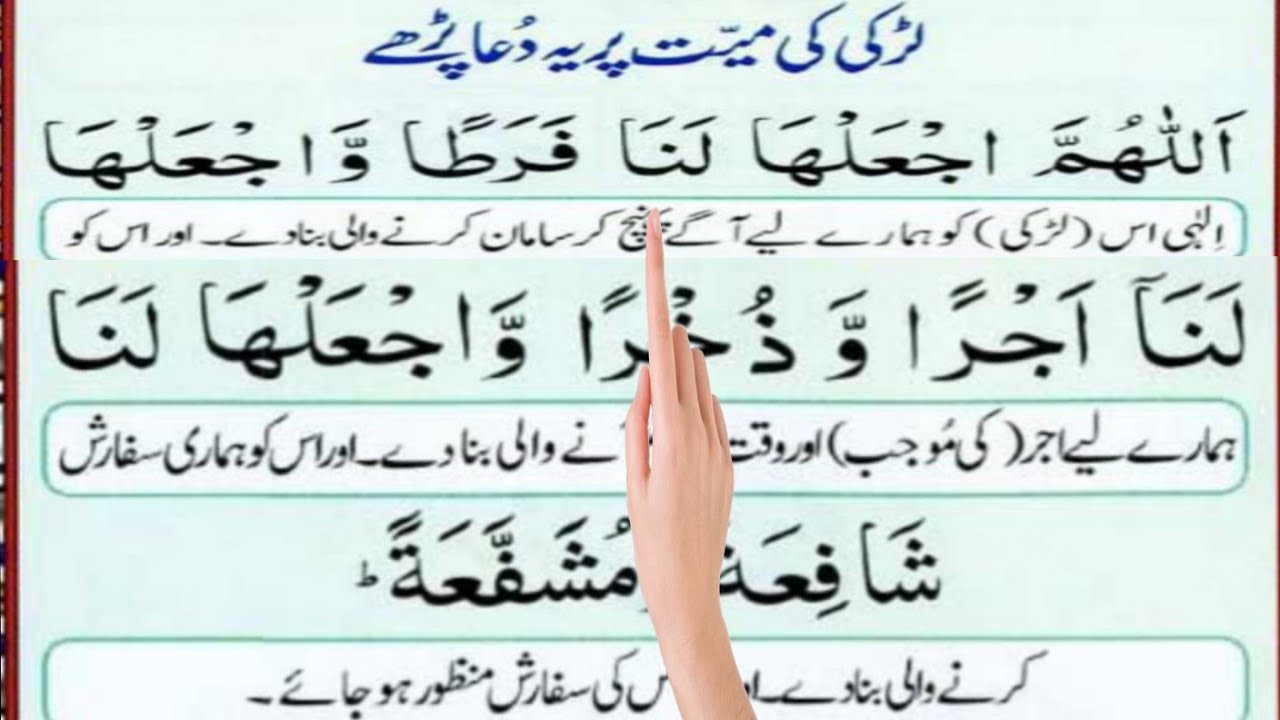 لڑکی کی میّت پر یہ دُعا پڑھے
اَللّٰهُمَّ اجْعَلْهَا لَنَا فَرَطًا وَّاجْعَلْهَا
اِلٰہی اس (لڑکی) کو ہمارے لیے آگے پہنچ کر سامان کرنے والی بنادے۔ اور اس کو
لَنَاۤ اَجْرًا وَّ ذُخْرًا وَّاجْعَلْهَا لَنَا
ہمارے لیے اجر (کی مُوجب) اور وقت نے والی بنا دے۔ اور اس کو ہماری سفارش
شَافِعَةً مُشَفَّعَةً ؕ
کرنے والی بنادے۔ کی سفارش منظور ہو جائے۔